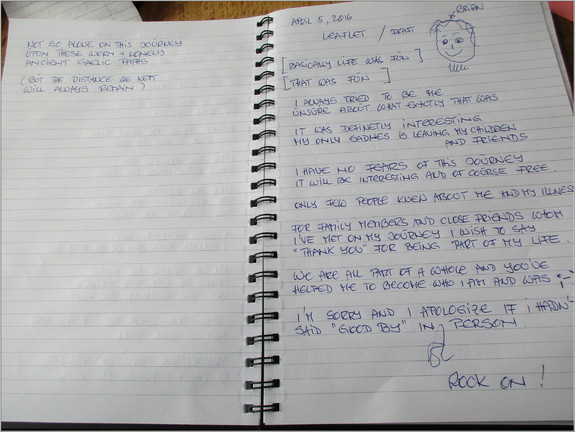 NOT SO ALONE ON THIS JOURNEY
UPON THESE WORN + LONELY
ANCIENT GAELIC PATHS
(BUT THE DISTANCE WE KEPT
WILL ALWAYS REMAIN)
APRIL 5, 2016
BRIAN
LEAFLET / DRAFT
[BASICALLY LIFE WAS FUN]
[THAT WAS FUN]
I ALWAYS TRIED TO BE ME
UNSURE ABOUT WHAT EXACTLY THAT WAS
IT WAS DEFINETLY INTERESTING
MY ONLY SADNES IS LEAVING MY CHILDREN
AND FRIENDS
I HAVE NO FEARS OF THIS JOURNEY
IT WILL BE INTERESTING AND OF COURSE FREE.
ONLY FEW PEOPLE KNEW ABOUT ME AND MY ILLNESS
FOR FAMILY MEMBERS AND CLOSE FRIENDS WHOM
I'VE MET ON MY JOURNEY I WISH TO SAY
"THANK YOU" FOR BEING PART OF MY LIFE.
WE ARE ALL PART OF A WHOLE AND YOU'VE
HELPED ME TO BECOME WHO I AM AND WAS ;-)
I'M SORRY AND I APOLOGIZE IF I HADN'
SAID "GOOD BY" IN PERSON
ROCK ON!